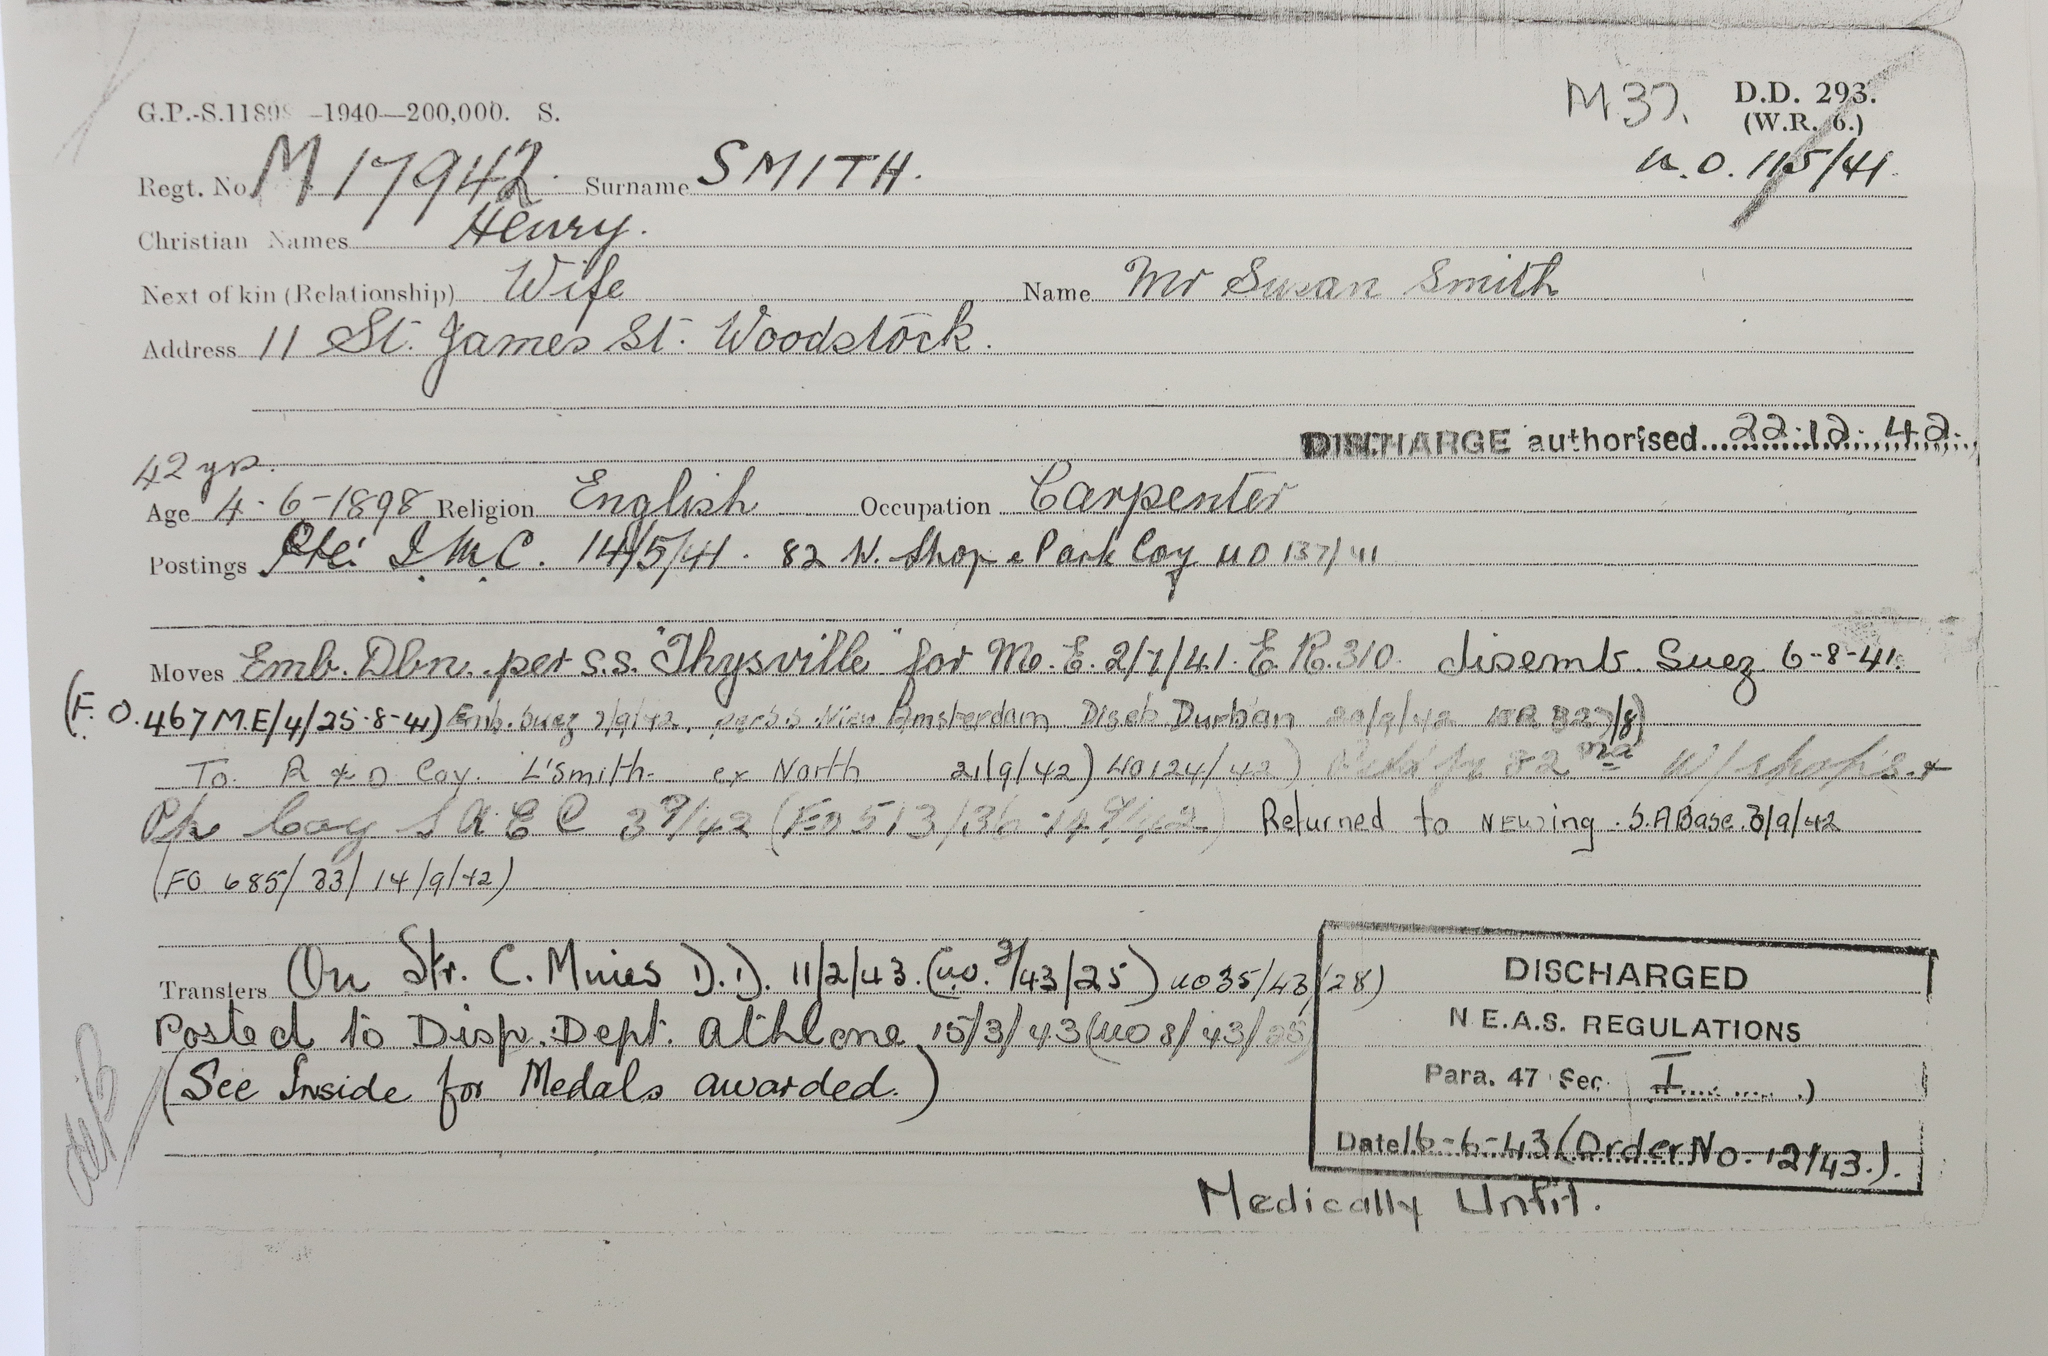 G.P.-S.11898 -1940—200,000. S.
M37. D.D. 293.
(W.R. 6.)
Regt. No. M 17942 Surname SMITH. U.O. 115/41.
Christian Names Henry.
Next of kin (Relationship) Wife Name Mr Susan Smith
Address 11 St. James St. Woodstock.
DISCHARGE authorised 22.12.42.
42 yrs.
Age 4-6-1898 Religion English Occupation Carpenter
Postings Pte. I.M.C. 14/5/41. 82 W. Shop & Park Coy UO 137/41
Moves Emb. Dbn. per S.S. "Thysville" for M.E. 2/7/41. E.R.310. disemb. Suez 6-8-41.
(F.O.467 M.E/4/25-8-41) Emb. Suez 7/9/42, per s.s. Niew Amsterdam Diseb Durban 20/9/42
To R & D Coy. L'Smith ex North 21/9/42) UO 124/42) 82nd W/shops &
Pk Coy S A E C 3/9/42 (FO 513/36-14/9/42) Returned to S.A Base. 3/9/42
(FO 685/33/14/9/42)
Transfers On Str. C. D.D. 11/2/43. (U.O. 2/43/25) UO 35/43/28)
Posted to Disp. Dept. Athlone 15/3/43 (UO 8/43/25
(See Inside for Medals awarded.)
DISCHARGED
N.E.A.S. REGULATIONS
Para. 47 Sec. I )
Date 16-6-43 (Order No. 12/43.).
Medically Unfit.